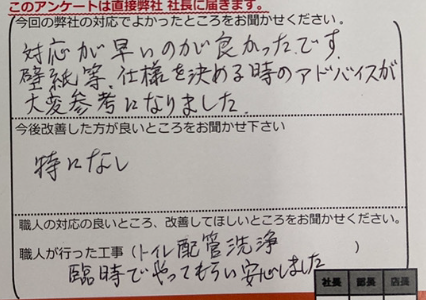 このアンケートは直接弊社 社長に届きます。
今回の弊社の対応でよかったところをお聞かせください。
対応が早いのが良かったです。
壁紙等、仕様を決める時のアドバイスが
大変参考になりました。
今後改善した方が良いところをお聞かせ下さい
特になし
職人の対応の良いところ、改善してほしいところをお聞かせください。
職人が行った工事（トイレ配管洗浄 ）
臨時でやってもらい安心しました
社長 部長 店長